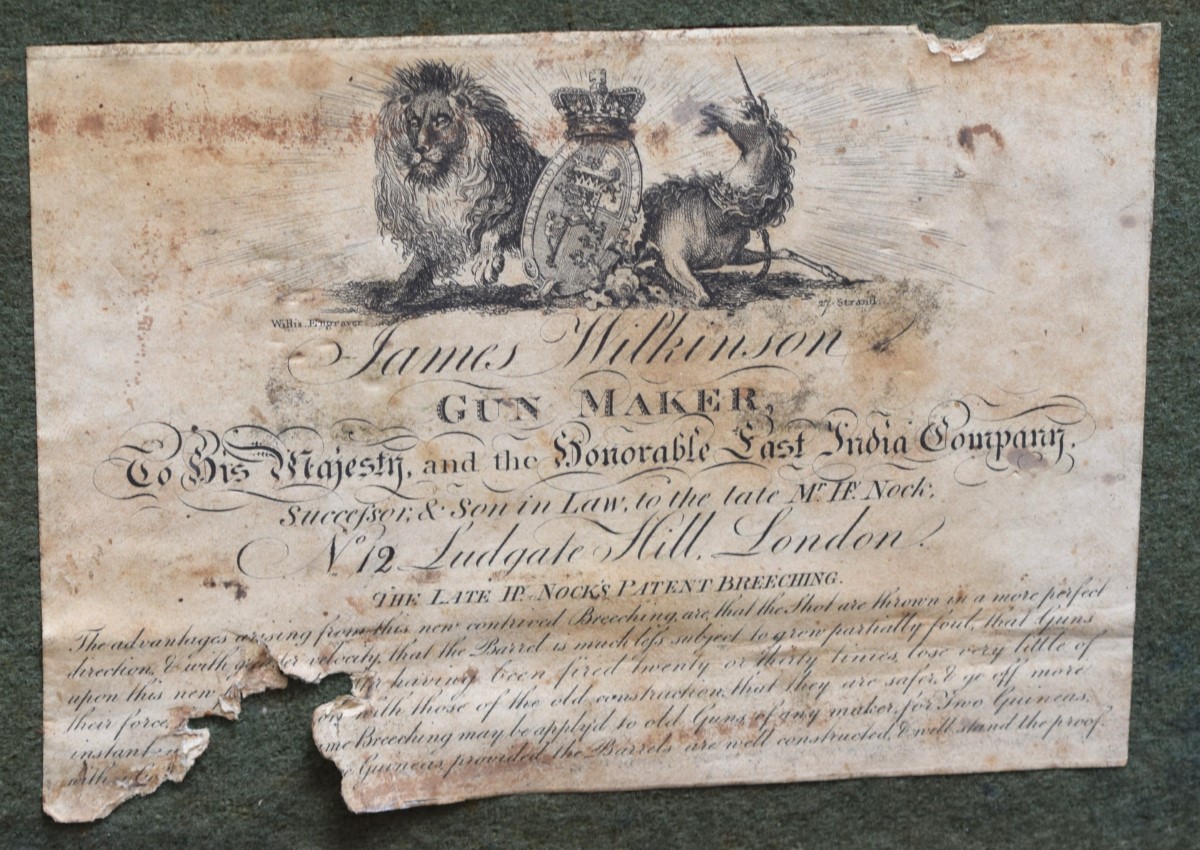 Willis. Engraver
27. Strand.
James Wilkinson
GUN MAKER,
To His Majesty, and the Honorable East India Company,
Succeſsor, & Son in Law, to the late Mr. Hy. Nock,
No. 12 Ludgate Hill, London.
THE LATE Hy. NOCK'S PATENT BREECHING.
The advantages arising from this new contrived Breeching, are, that the Shot are thrown in a more perfect
direction, & with greater velocity, that the Barrel is much leſs subject to grow partially foul, that Guns
upon this new having been fired twenty or thirty times, lose very little of
their force, with those of the old construction, that they are safer, & go off more
instant Breeching may be applyd to old Guns, of any maker, for Two Guineas,
with Guineas, provided the Barrels are well constructed, & will stand the proof.